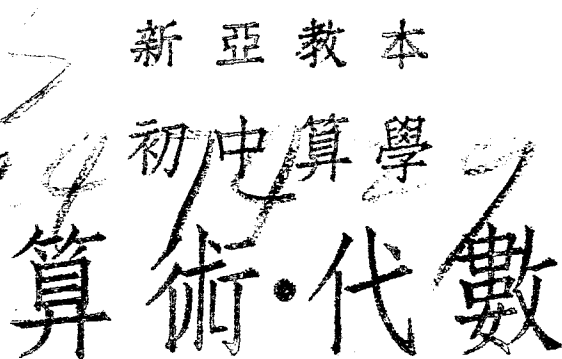 新亞教本
初中算學
算術·代數